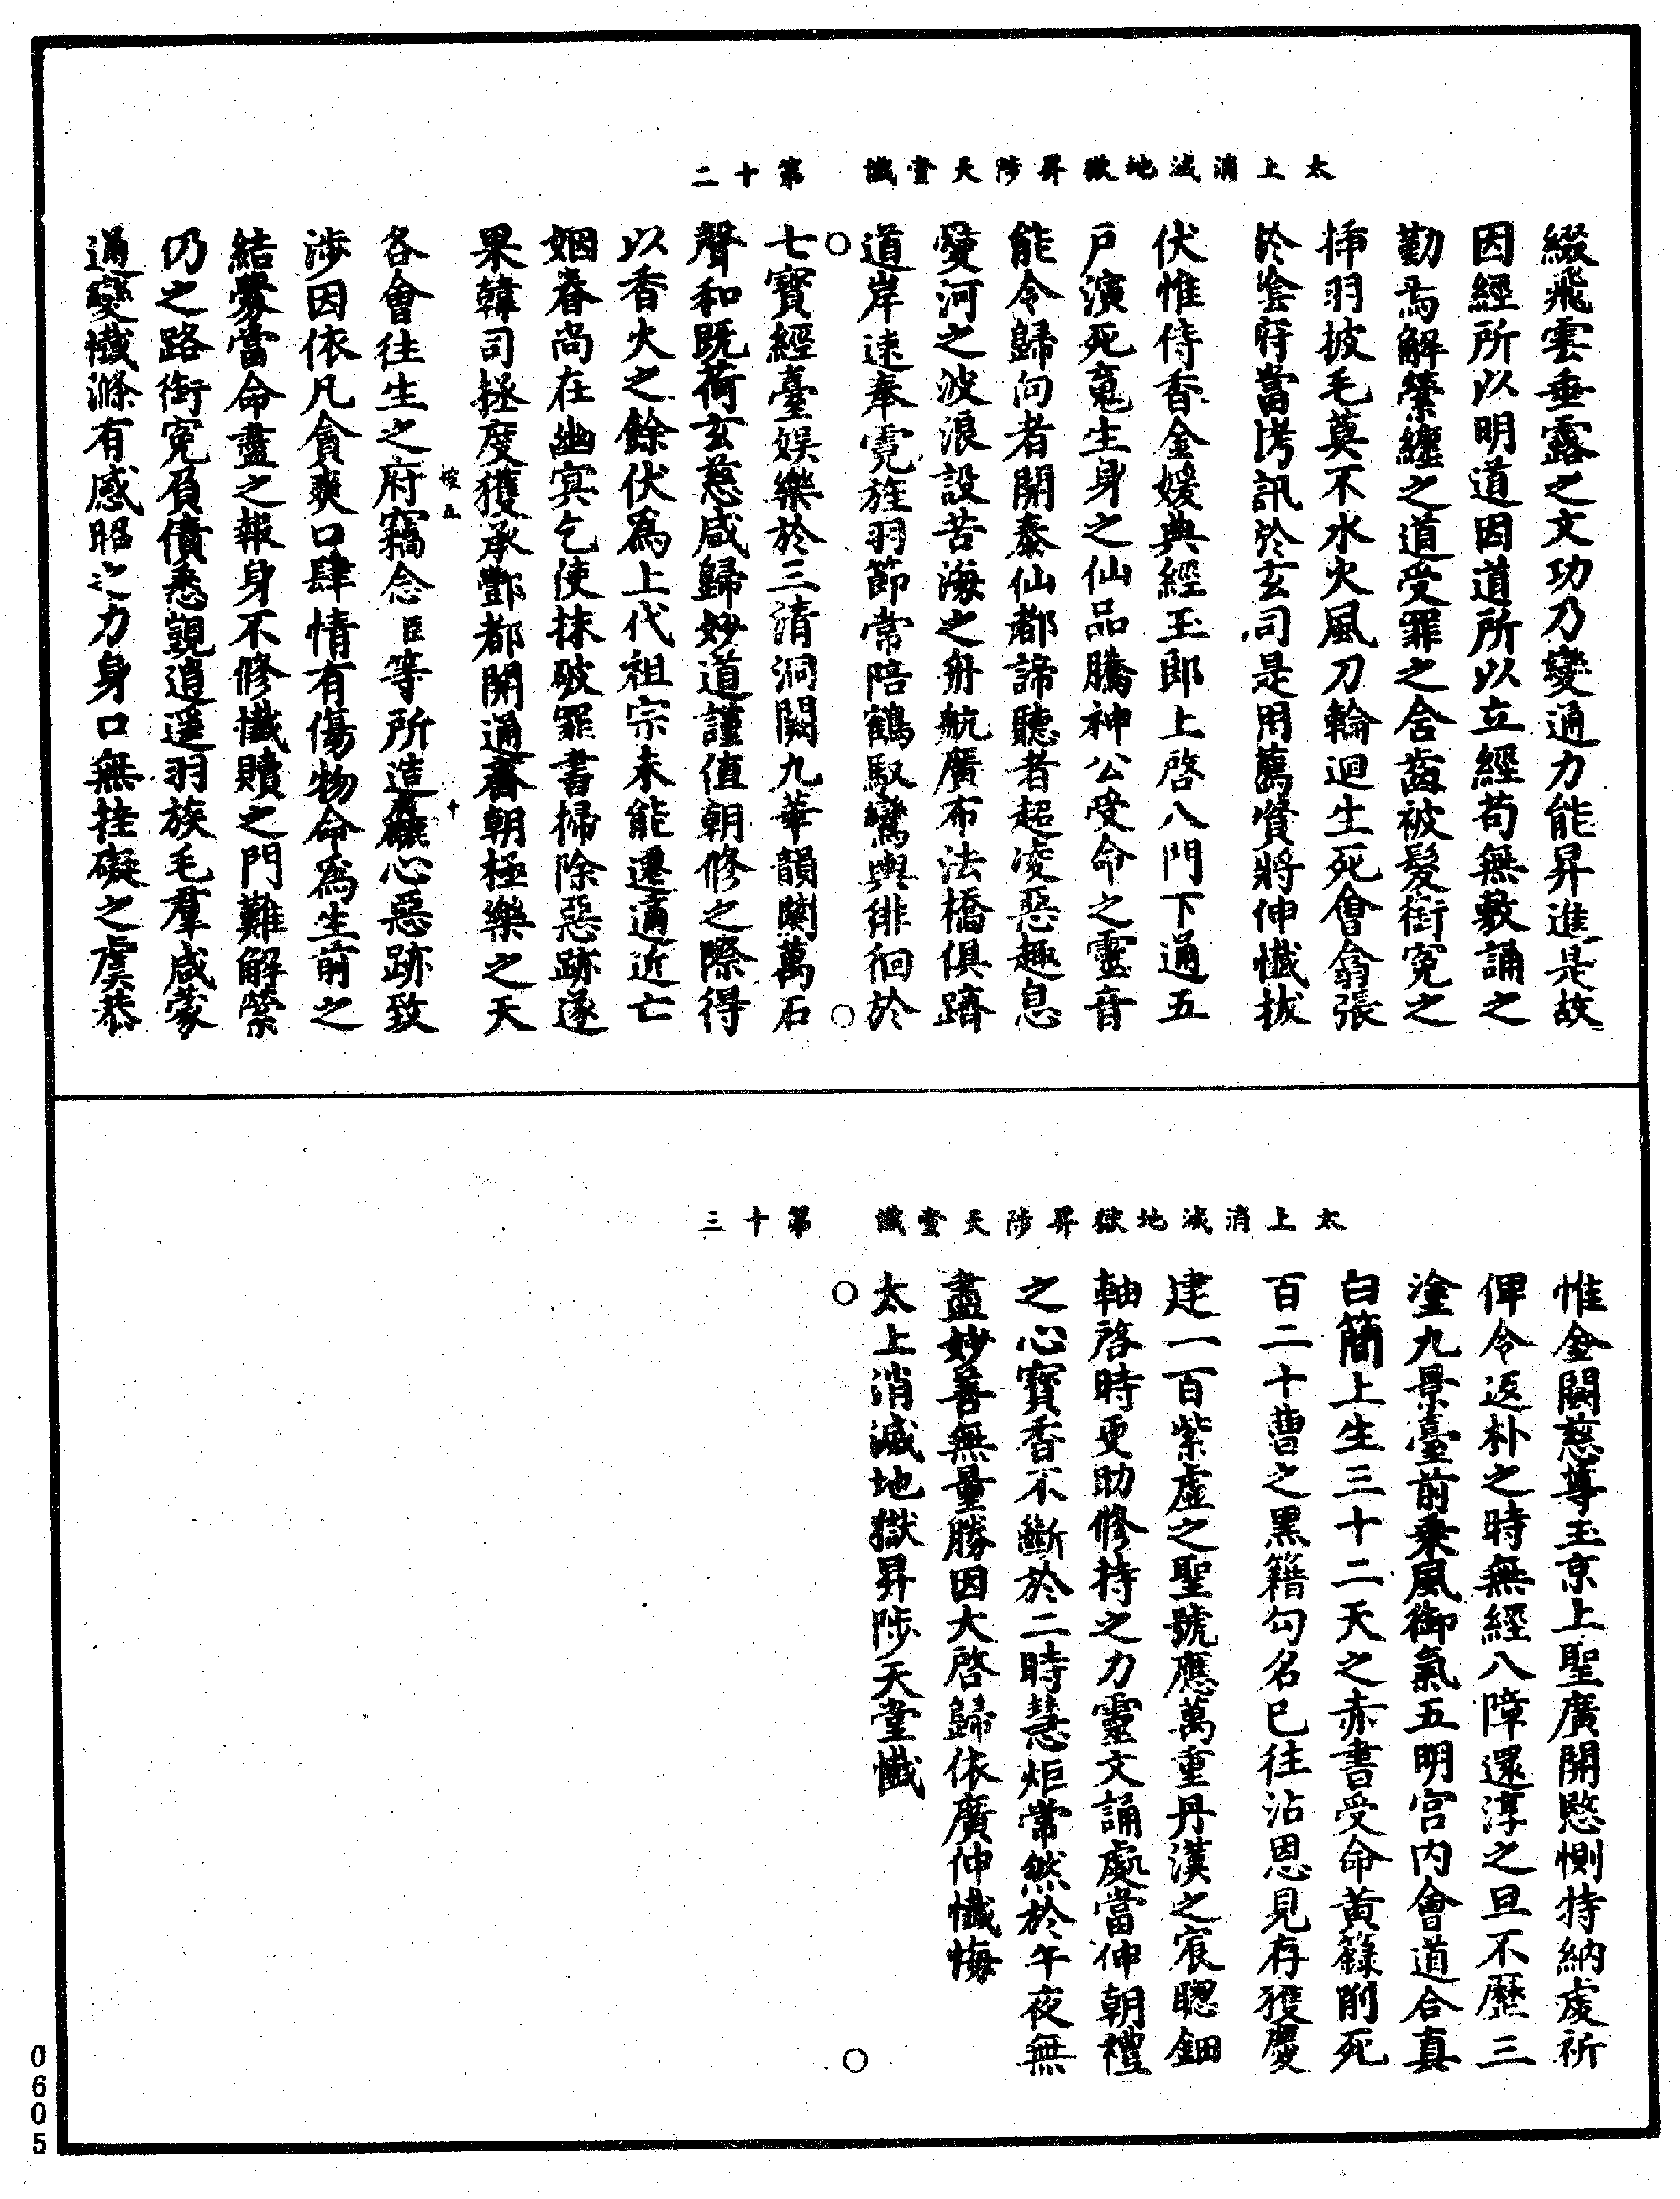 太上消滅地獄昇陟天堂懺　第十二
綴飛雲垂露之文功乃變通力能昇進是故
因經所以明道因道所以立經苟無敷誦之
勤焉解縈纏之道受罪之舍齒被髮銜寃之
挿羽披毛莫不水火風刀輪迴生死會翕張
於陰府當拷訊於玄司是用萬賫將伸懺拔
伏惟侍香金媛典經玉郎上啓八門下通五
戶演死䰟生身之仙品騰神公受命之靈音
能令歸向者開泰仙都諦聽者超凌惡趣息
愛河之波浪設苦海之舟航廣布法橋俱躋
道岸速奉霓旌羽節常陪鶴馭鸞輿徘徊於
七寶經臺娛樂於三清洞闕九華韻闡萬石
聲和既荷玄慈咸歸妙道謹值朝修之際得
以香火之餘伏爲上代祖宗未能遷適近亡
姻眷尚在幽冥乞使抹破罪書掃除惡跡遂
果韓司拯度獲承酆都開通齋朝極樂之天
各會往生之府竊念臣等所造㢤心惡跡致
涉因依凡貪爽口肆情有傷物命爲生前之
結釁當命盡之報身不修懺贖之門難解縈
仍之路銜寃負債悉覩逍遥羽族毛羣咸蒙
通變懺滌有感昭之力身口無挂礙之虞恭
十
太上消滅地獄昇陟天堂懺　第十三
惟金闕慈尊玉京上聖廣開愍惻特納虔祈
俾令返朴之時無經八障還淳之旦不歷三
塗九景臺前乗風御氣五明宫内會道合真
白簡上生三十二天之赤書受命黄籙削死
百二十曹之黑籍勾名已往沾恩見存獲慶
建一百紫虛之聖號應萬重丹漢之宸聰鈿
軸啓時更助修持之力靈文誦處當伸朝禮
之心寶香不斷於二時慧炬常然於午夜無
盡妙善無量勝因大啓歸依廣伸懺悔
太上消滅地獄昇陟天堂懺
0605